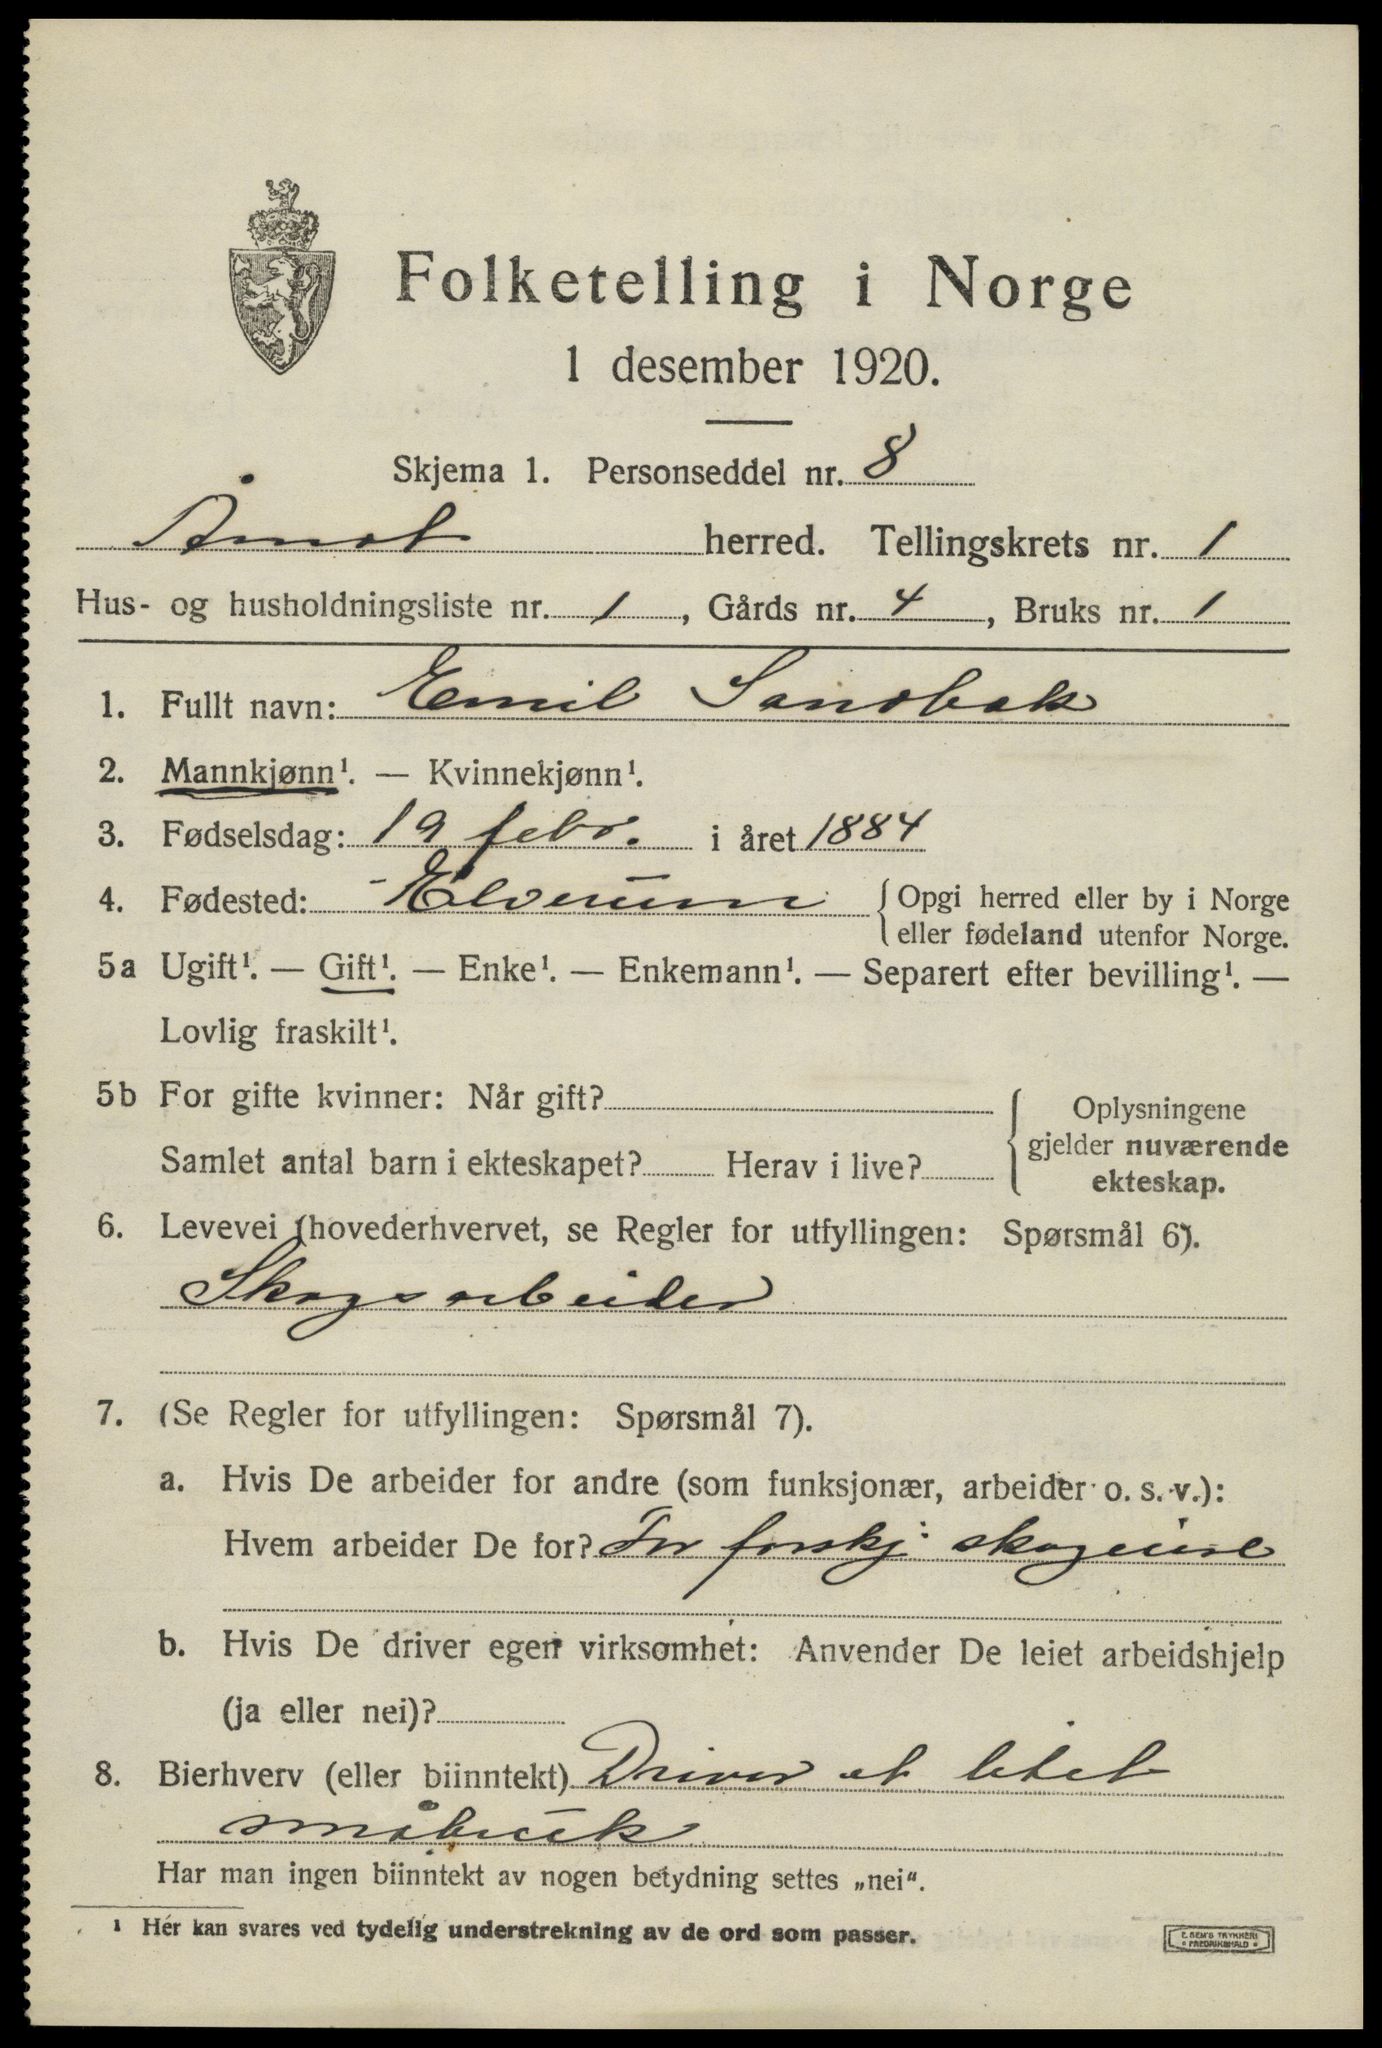 Folketelling i Norge
1 desember 1920.
Skjema 1. Personseddel nr. 8
Åmot herred. Tellingskrets nr. 1
Hus- og husholdningsliste nr. 1, Gårds nr. 4, Bruks nr. 1
1. Fullt navn: Emil Sandbak
2. Mannkjønn¹. — Kvinnekjønn¹.
3. Fødselsdag: 19 febr. i året 1884
4. Fødested: Elverum {Opgi herred eller by i Norge
eller fødeland utenfor Norge.
5a Ugift¹. — Gift¹. — Enke¹. — Enkemann¹. — Separert efter bevilling¹. —
Lovlig fraskilt¹.
5b For gifte kvinner: Når gift?
Samlet antal barn i ekteskapet? Herav i live?
Oplysningene
gjelder nuværende
ekteskap.
6. Levevei (hovederhvervet, se Regler for utfyllingen: Spørsmål 6).
Skogsarbeider
7. (Se Regler for utfyllingen: Spørsmål 7).
a. Hvis De arbeider for andre (som funksjonær, arbeider o. s. v.):
Hvem arbeider De for? For forskj: skogeiere
b. Hvis De driver egen virksomhet: Anvender De leiet arbeidshjelp
(ja eller nei)?
8. Bierhverv (eller biinntekt) Driver et litet
småbruk
Har man ingen biinntekt av nogen betydning settes „nei“.
¹ Her kan svares ved tydelig understrekning av de ord som passer.
E. SEM'S TRYKKERI
FREDRIKSHALD